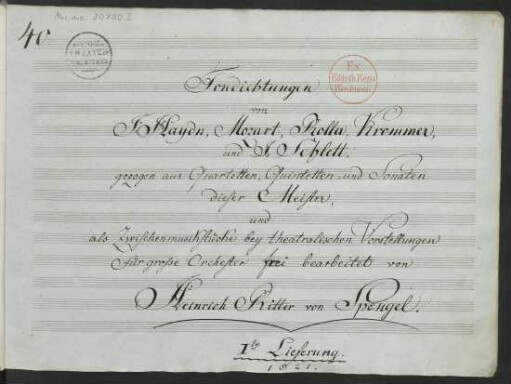 Mus. mss. 20760 I
40.
Tondichtungen
von
J. Haydn, Mozart, Rolla, Krommer,
und J. Schlett,
gezogen aus Quartetten, Quintetten und Sonaten
dieser Meister,
und
als Zwischenmusikstücke bey theatralischen Vorstellungen
für große Orchester frei bearbeitet von
Heinrich Ritter von Spengel.
Ite Lieferung.
1821.
Ex
Biblioth. Regia
THEATER